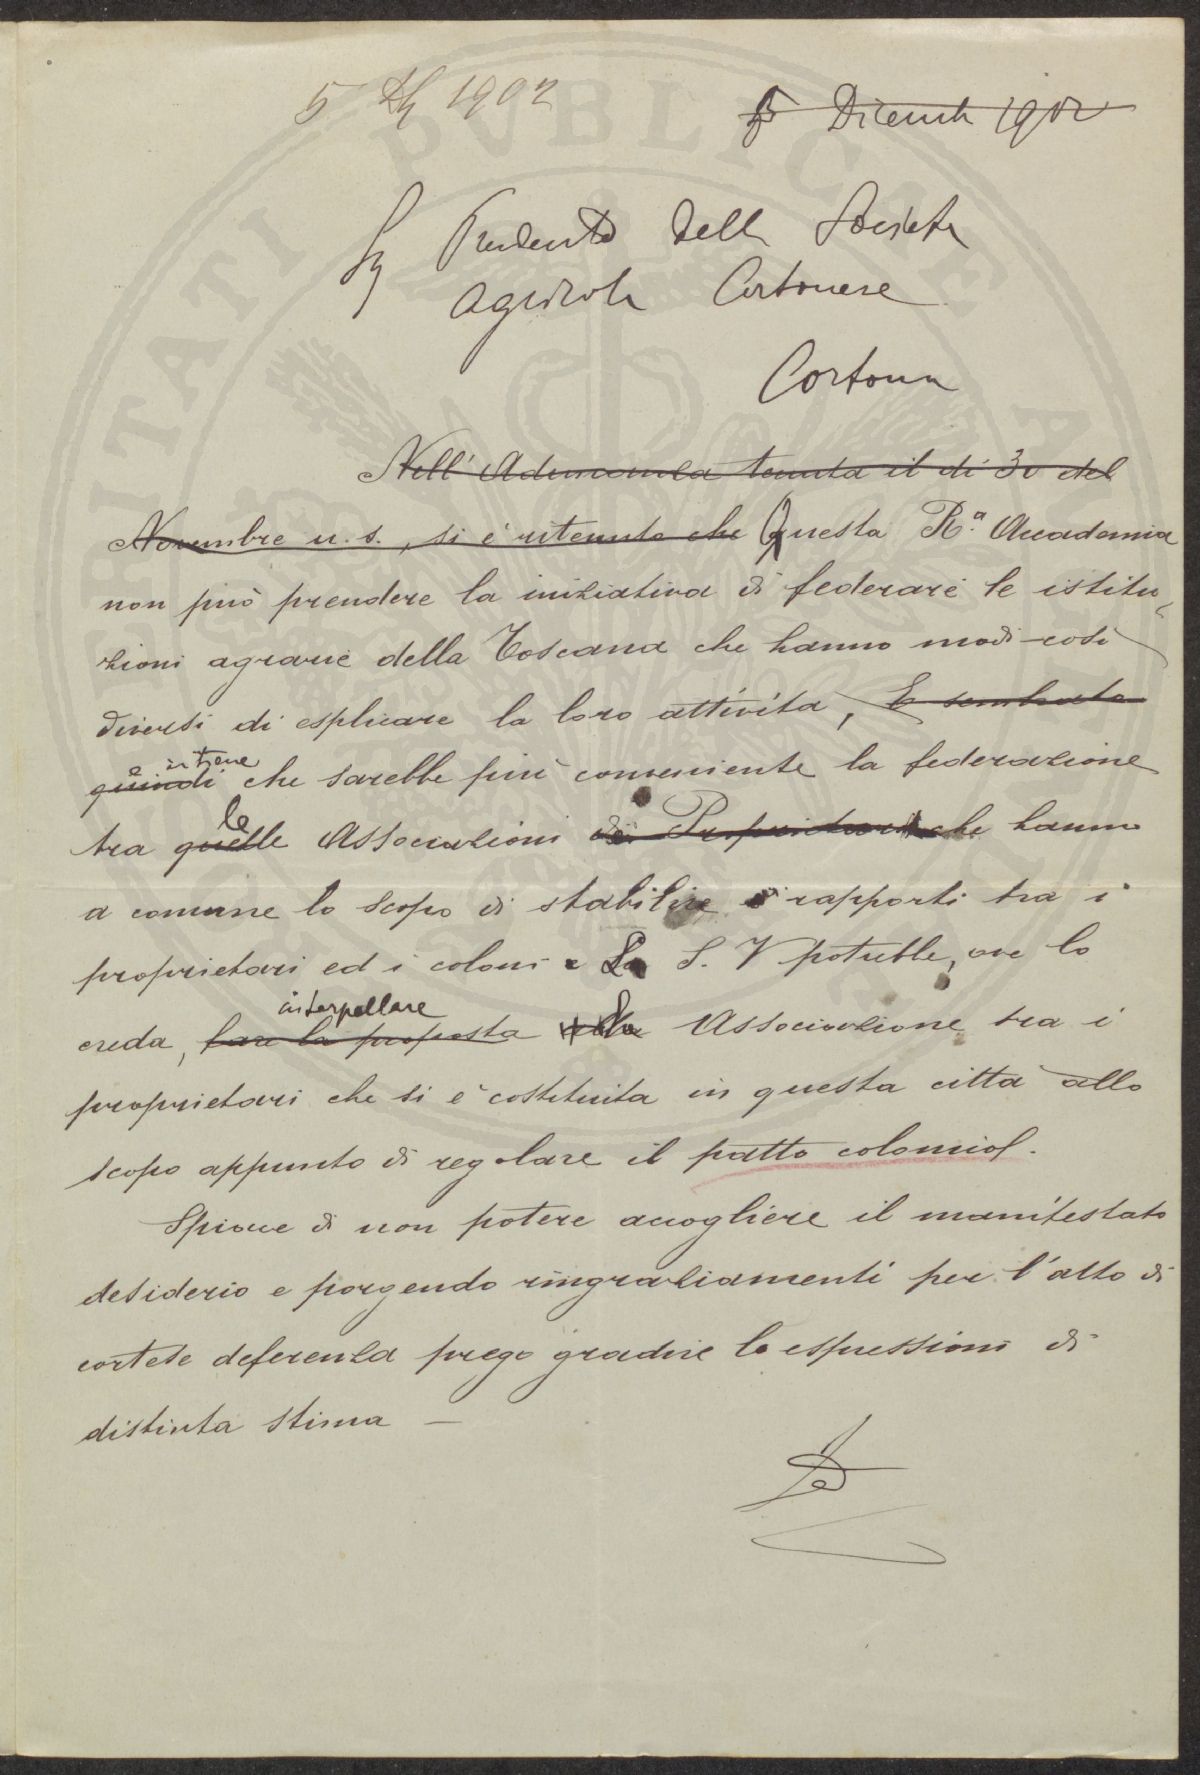 5 Xb 1902
5 Dicembre 1902
Sig Presidente della Società
Agricola Cortonese
Cortona
Nell'Adunanza tenuta il di 30 del
Novembre u. s., si è ritenuto che Questa R.a Accademia
non può prendere la iniziativa di federare le istitu-
zioni agrarie della Toscana che hanno modi così
diversi di esplicare la loro attività, È sembrato
e ritiene
quindi che sarebbe più conveniente la federazione
le
tra quelle Associazioni dei Proprietari che hanno
a comune lo scopo di stabilire i rapporti tra i
proprietari ed i coloni e La S. V potrebbe, ove lo
interpellare
creda, fare la proposta alla Associazione tra i
proprietari che si è costituita in questa città allo
scopo appunto di regolare il patto colonico.
Spiace di non potere accogliere il manifestato
desiderio e porgendo ringraziamenti per l'atto di
cortese deferenza prego gradire le espressioni di
distinta stima —
PVBLICAE